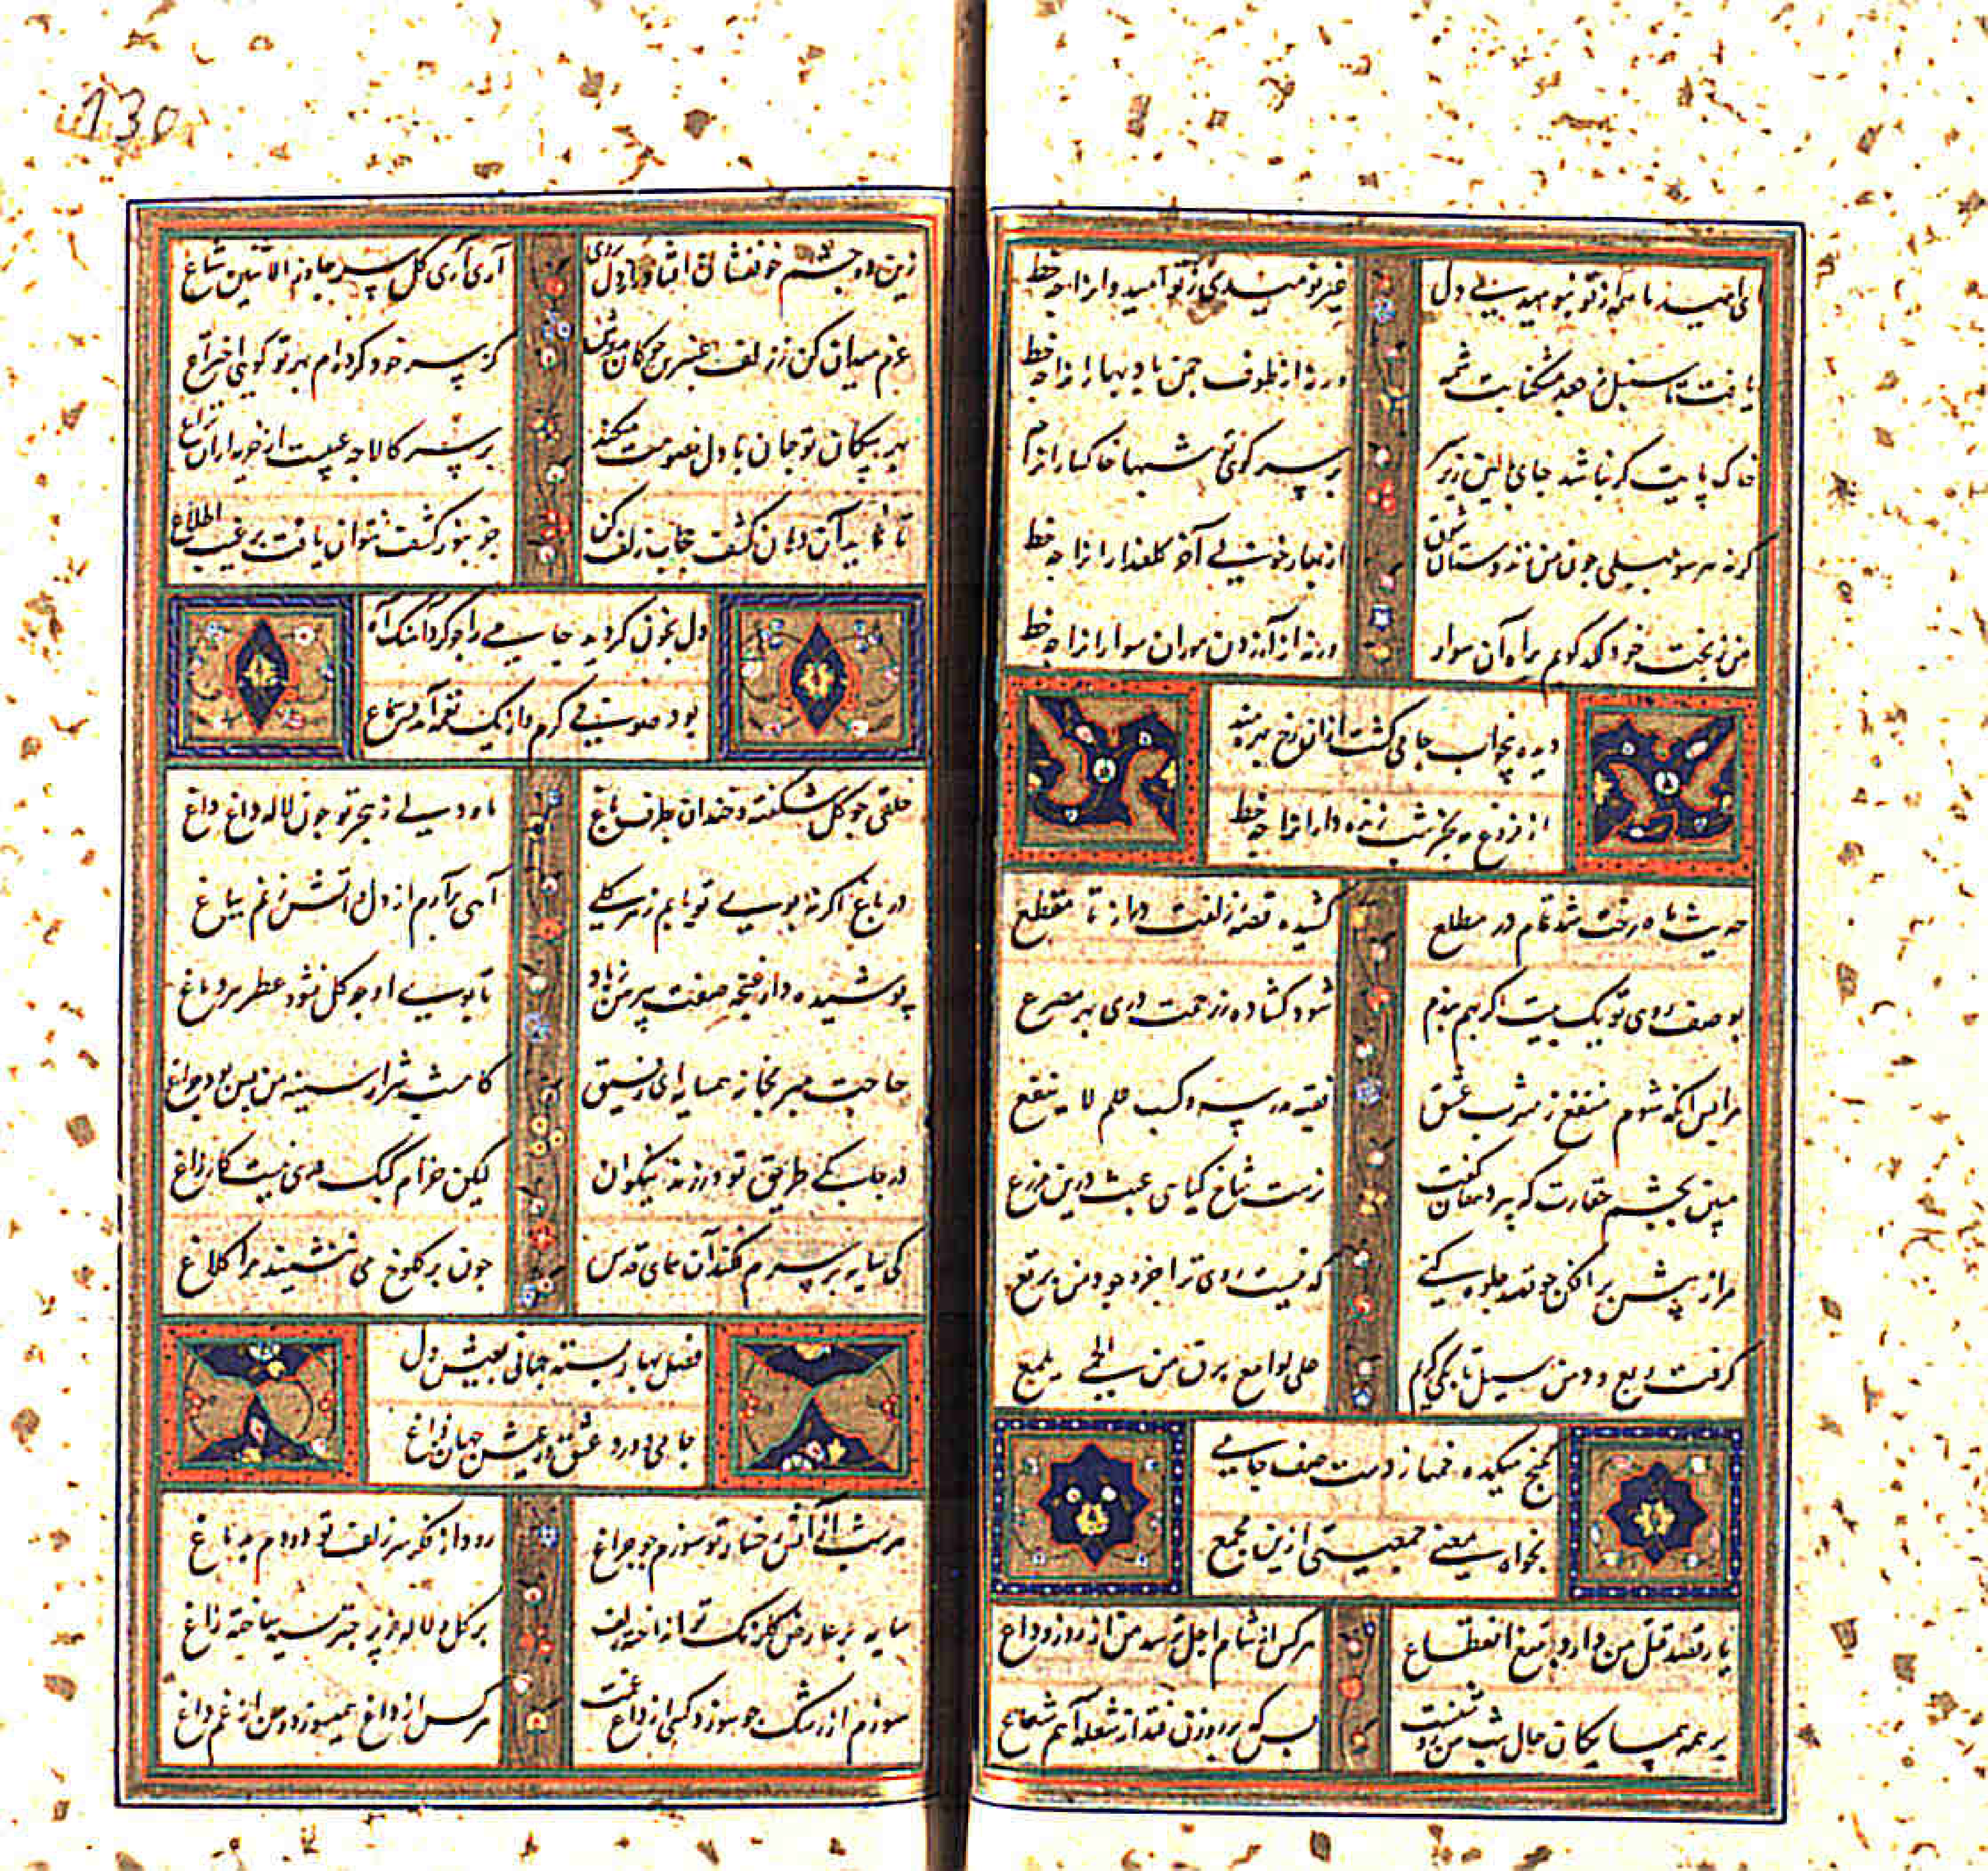 ای امید ما همه از تو نومیدی دل
غیر نومیدی ز تو امیدوارانرا چه حظ
یافت تا سنبل ز جعد مشکنابت شمه
ورنه از طوف چمن باد بهارانرا چه حظ
خاک پایت گر نباشد جای بالین زیر سر
بر سر کوی تو شبها خاکسارانرا
گرنه هر سو بلبلی چون من زند دستان شوق
از بهار خوبی آخر گلعذارانرا چه حظ
من ز بخت خود کد کویم براه آن سوار
ورنه از آزردن موران سوارانرا چه حظ
دیده بخواب جامی گشت ازان رخ بهره‌مند
از فروغ مه بجز شب زنده دارانرا چه حظ
حدیث ماه رخت شد تمام در مطلع
کشیده قصه زلفت دراز تا مقطع
بوصف روی تو یک بیت اگر بهم بندم
شود کشاده ز رحمت دری بهر مصرع
مرا بس آنکه شوم منتفع ز مشرب عشق
فقیه و مدرسه و کسب علم لا ینفع
مبین بچشم حقارت که پیر دهقان گفت
نرست شاخ گیاهی عبث درین مزرع
مرا ز پیش برافکن چو قصد جلوه کنی
که نیست روی ترا جز وجود من برقع
گرفت ربع و دمن سیل تا بکی گریم
علی لوامع برق من الحمی یلمع
کنج میکده خمها ز دست صف جامی
بخواه معنی جمعیتی ازین مجمع
یار قصد قتل من دارد بتیغ انقطاع
هر کس از شام اجل ترسد من از روز وداع
بر همه همسایکان حال شب من روشنست
بس که بر روزن فتد از شعله آهم شعاع
زین دو چشم خونفشان افتاد راز دل بروی
آری آری کل سر جاوز الاثنین شاع
عزم میدان کن ز زلف عنبری چوگان بدوش
کز سر خود کرده‌ام بهر تو گویی اختراع
بهر پیکان تو جان با دل خصومت میکند
بر سر کالا چه عیبست از خریداران نزاع
تا نماید آن دهان کشف حجاب زلف کن
جز بنور کشف نتوان یافت بر غیب اطلاع
دل بخون گردید جامی را چو کرد آهنگ آه
بود صوفی گرم از یک نغمه آمد در سماع
خلقی چو گل شکفته و خندان بطرف باغ
ماه و دلی ز هجر تو چون لاله داغ داغ
در باغ اگر نه بوی تو یابم ز هر گلی
آهی برآرم از دل و آتش زنم بباغ
پوشیده دار غنچه صفت پیرهن ز باد
تا بوی او چو گل نشود عطر هر دماغ
حاجت مبر بخانه همسایه ای رفیق
کامشب شرار سینه من بس بود چراغ
در جلوه‌گی طریق تو ورزند نیکوان
لیکن خرام کبک دری نیست کار زاغ
کی سایه بر سرم فکند آن همای قدس
چون بر کلوخ می ننشیند مرا کلاغ
فصل بهار بسته جهانی بعیش دل
جامی و درد عشق و ز عیش جهان فراغ
هر شب از آتش رخسار تو سوزم چو چراغ
رود از فکر سر زلف تو دودم بدماغ
سایه بر عارض گلرنگ تو انداخته زلف
بر گل و لاله ز پر چتر سیه ساخته زاغ
سوزم از رشک چو سوزد کسی از داغ غمت
هر کس از داغ همیسوزد و من از غم داغ